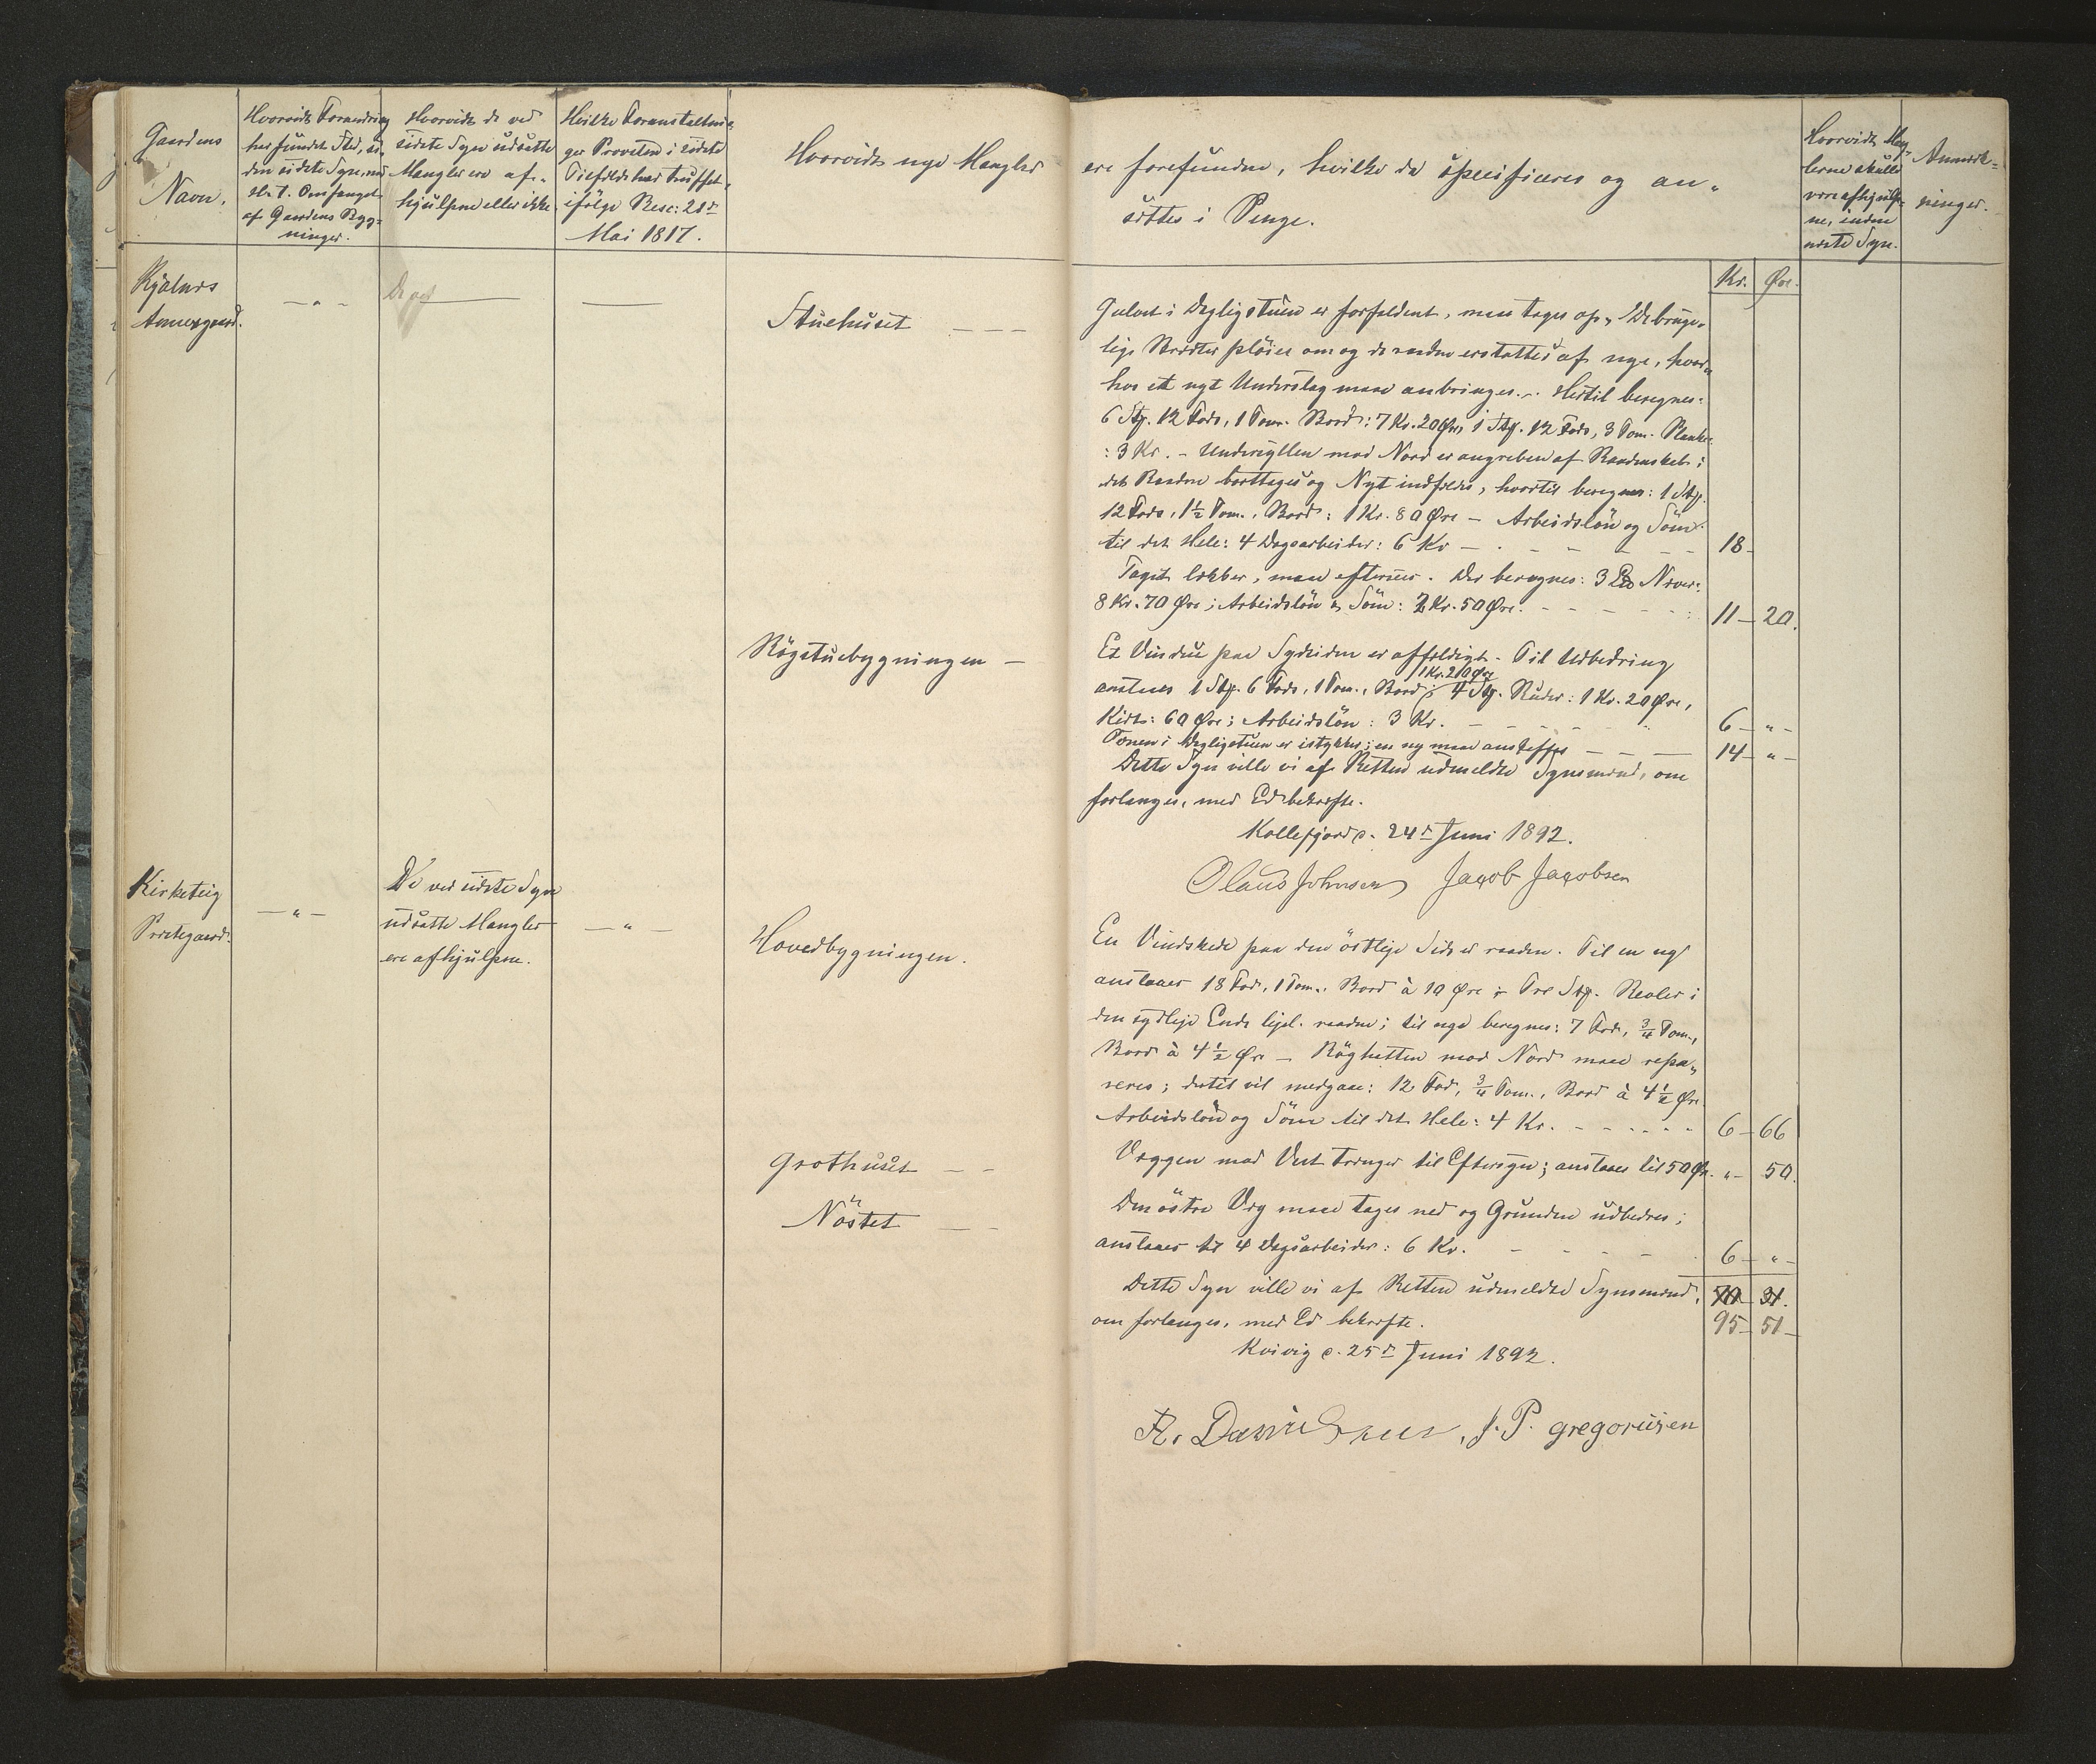 Gaardens
Navn.
Hvorvidt Forandring
har fundet Sted, si-
den sidste Syn, med
H. t. Omfanget
af Gaardens Byg-
ninger.
Hvorvidt de ved
sidste Syn udsatte
Mangler ere af-
hjulpne eller ikke.
Hvilke Foranstaltnin-
ger Provsten i sidste
Tilfælde har truffet
ifölge Resc: 21de
Mai 1817.
Hvorvidt nye Mangler
ere forefundne, hvilke da specificeres og an-
sættes i Penge.
Hvorvidt Mang-
lerne skulle
være afhjulp-
ne, inden
næste Syn.
Anmærk-
ninger.
Kr. Øre.
Kjalnæs
Annexgaard.
— „ —
Stuehuset — — —
Gulvet i Dagligstuen er forfaldent, maa tages op, de bruge-
lige Brædder plöies om og de raadne erstattes af nye, hvor-
hos et nyt Underslag maa anbringes. - Hertil beregnes:
6 Stk. 12 Fods, 1 Tom. Bord: 7 Kr. 20 Øre, 1 Stk. 12 Fods, 3 Tom. Planke
: 3 Kr. - Undersyllen mod Nord er angreben af Raadenskab;
det Raadne borttages og Nyt indfældes, hvortil beregnes: 1 Stk.
12 Fods, 1½ Tom., Bord: 1 Kr. 80 Øre — Arbeidslön og Söm
til det Hele: 4 Dagsarbeider: 6 Kr — 18 -
Taget lækker, maa efterses. Der beregnes: 3 Næver:
8 Kr. 70 Øre; Arbeidslön & Söm: 2 Kr. 50 Øre. 11 — 20.
Rögstuebygningen —
Et Vindue paa Sydsiden er affældigt. Til Udbedring
1 Kr. 20 Øre
ansættes 1 Stk. 6 Fods, 1 Tom., Bord; 4 Stk. Ruder: 1 Kr. 20 Øre,
Kitt: 60 Øre; Arbeidslön: 3 Kr. 6 — „ -
Ovnen i Dagligstuen er istykker; en ny maa anskaffes — — — 14 — „ —
Dette Syn ville vi af Retten udmeldte Synsmænd, om
forlanges, med Ed bekræfte.
Kollefjord d. 24de Juni 1892.
Olaus Johnsen Jacob Jacobsen
Kirketeig
Præstegaard.
— „ —
De ved sidste Syn
udsatte Mangler
ere afhjulpne.
— „ —
Hovedbygningen.
En Vindskede paa den östlige Side er raaden. Til en ny
anslaaes 18 Fod, 1 Tom. Bord à 10 Øre; Tre Stk. Revler i
den sydlige Ende ligel. raadne; til nye beregnes: 7 Fod, ¾ Tom.,
Bord à 4½ Øre — Röghætten mod Nord maa repa-
reres; dertil vil medgaae: 12 Fod, ¾ Tom., Bord à 4½ Øre.
Arbeidslön og Söm til det Hele: 4 Kr. 6 — 66
Grothuset — —
Væggen mod Vest trænger til Eftersyn; anslaaes til 50 Øre. „ — 50.
Nöstet — —
Den östre Væg maa tages ned og Grunden udbedres;
anslaaes til 4 Dagsarbeider: 6 Kr. 6 — „ —
Dette Syn ville vi af Retten udmeldte Synsmænd,
om forlanges, med Ed bekræfte. 95 — 51 —
Kvivig d. 25de Juni 1892.
J. P. gregoriusen